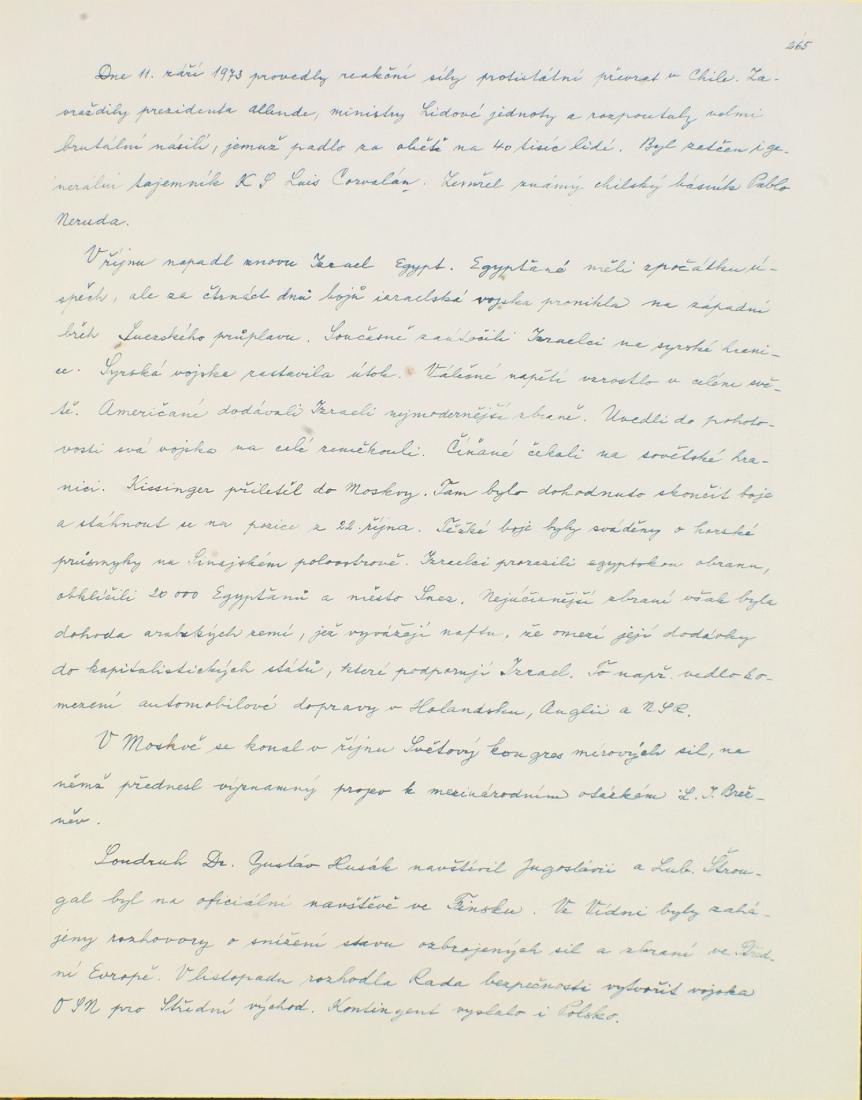 265
Dne 11. září 1973 provedly reakční síly protistátní převrat v Chile. Za-
vraždily prezidenta Allende, ministry Lidové jednoty a rozpoutaly velmi
brutální násilí, jemuž padlo za oběť na 40 tisíc lidí. Byl zatčen i ge-
nerální tajemník KS Luis Corvalán. Zemřel známý chilský básník Pablo
Neruda.
V říjnu napadl znovu Izrael Egypt. Egypťané měli zpočátku ú-
spěch, ale za čtrnáct dnů bojů izraelská vojska pronikla na západní
břeh Suezského průplavu. Současně zaútočili Izraelci na syrské hrani-
ce. Syrská vojska zastavila útok. Válečné napětí vzrostlo v celém svě-
tě. Američané dodávali Izraeli nejmodernější zbraně. Uvedli do pohoto-
vosti svá vojska na celé zeměkouli. Číňané čekali na sovětské hra-
nici. Kissinger přiletěl do Moskvy. Tam bylo dohodnuto skončit boje
a stáhnout se na pozice z 22. října. Těžké boje byly sváděny o horské
průsmyky na Sinajském poloostrově. Izraelci prorazili egyptskou obranu,
obklíčili 20 000 Egypťanů a město Suez. Nejúčinnější zbraní však byla
dohoda arabských zemí, jež vyvážejí naftu, že omezí její dodávky
do kapitalistických států, které podporují Izrael. To např. vedlo k o-
mezení automobilové dopravy v Holandsku, Anglii a NSR.
V Moskvě se konal v říjnu Světový kongres mírových sil, na
němž přednesl významný projev k mezinárodním otázkám L. I. Brež-
něv.
Soudruh Dr. Gustáv Husák navštívil Jugoslávii a Lub. Štrou-
gal byl na oficiální návštěvě ve Finsku. Ve Vídni byly zahá-
jeny rozhovory o snížení stavu ozbrojených sil a zbraní ve Střed-
ní Evropě. V listopadu rozhodla Rada bezpečnosti vytvořit vojska
OSN pro Střední východ. Kontingent vyslalo i Polsko.